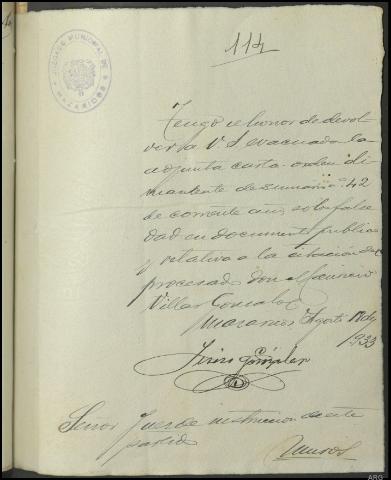 JUZGADO MUNICIPAL DE MAZARICOS
114
Tengo el honor de devol
ver a V S evacuada la
adjunta carta-orden di
manante de sumario 42
de corriente año sobre false
dad en documento publico
y relativo a la citación del
procesado don
Villar Gonzalez
Mazaricos Agosto de
1933
González
Señor Juez de instruccion de este
partido
Muros
ARG